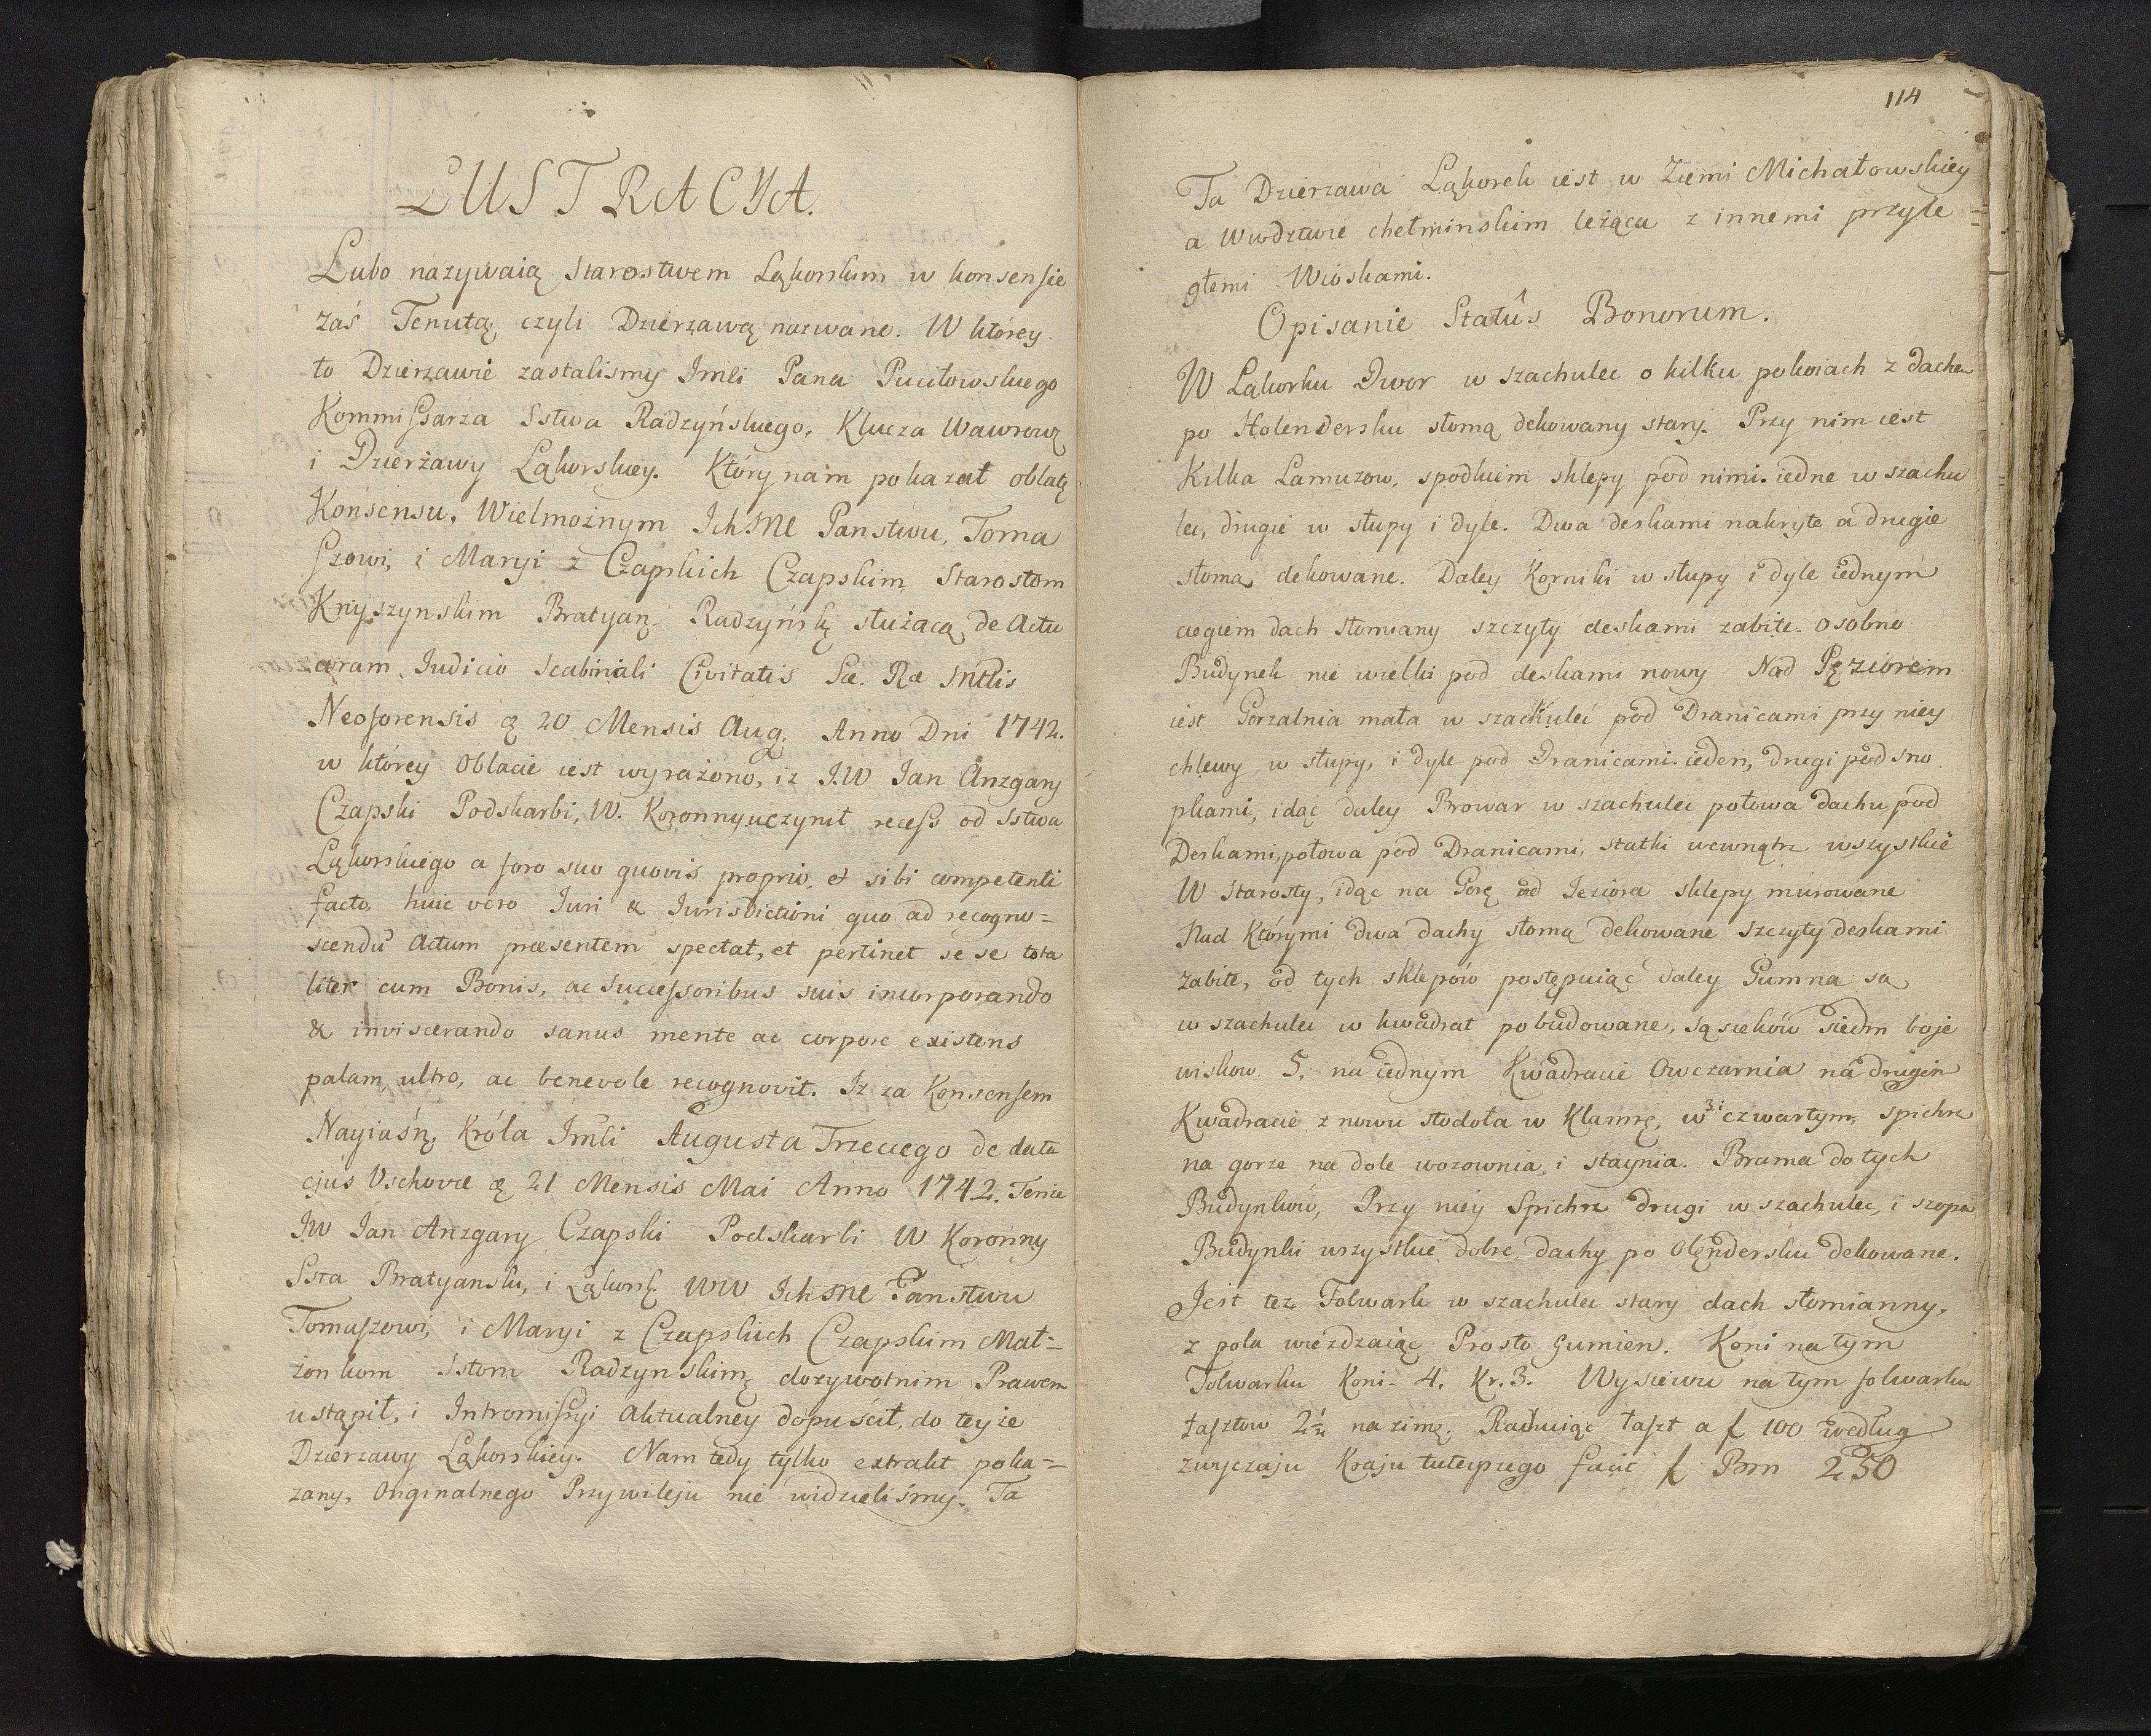 LUSTRACYA.
Lubo nazywaią Starostwem Ląkorskim w konsensie
zaś Tenutą czyli Dzierzawą nazwane. W którey
to Dzierzawie zastalismy Jmci Pana Puciłowskiego
Kommissarza Sstwa Radzyńskiego, Klucza Wawrow:
i Dzierżawy Ląkorskiey. Który nam pokazał oblatę
Konsensu, Wielmożnym Ich Mć Panstwu, Toma
szowi, i Maryi z Czapskich Czapskim Starostom
Knyszynskim Bratyań. Radzyńsk służącą de Actu
coram Judicio Scabinali Civitatis Sæ. Ræ Mttis
Neoforensis 20 Mensis Aug. Anno Dni 1742.
w którey Oblacie iest wyrażono, iz J.W Jan Anzgary
Czapski Podskarbi, W. Koronny uczynił recess od Sstwa
Ląkorskiego a foro suo quovis proprio, et sibi competenti
facto, huic vero Juri & Jurisdictioni quo ad recogno=
scendu Actum præsentem spectat, et pertinet se se tota
liter cum Bonis, ac Successoribus suis incorporando
& inviscerando sanus mente ac corpore existens
palam, ultro, ac benevole recognovit. Iz za Konsensem
Nayiaśn. Króla Jmci Augusta Trzeciego de data
ejus Vschovæ 21 Mensis Mai Anno 1742. Tenże
JW Jan Anzgary Czapski Podskarbi W Koronny
Ssta Bratyansk, i Ląkorsk WW Ich Mć Panstwu
Tomaszowi, i Maryi z Czapskich Czapskim Mał=
żonkom Sstom Radzynskim dozywotnim Prawem
ustąpił, i Intromissyi Aktualney dopuścił, do teyże
Dzierzawy Ląkorskiey. Nam tedy tylko extrakt poka=
zany, Originalnego Przywileju nie widzieliśmy. Ta
114
Ta Dzierzawa Ląkorek iest w Ziemi Michałowskiey
a Wwdztwie chełminskim leżąca z innemi przyle=
głemi Wioskami.
Opisanie Statûs Bonorum.
W Ląkorku Dwor w szachulec o kilku pokoiach z dachem
po Holendersku słomą dekowany stary. Przy nim iest
Kilka Lamuzow, spodkiem sklepy pod nimi. iedne w szachu
lec, drugie w słupy i dyle. Dwa deskami nakryte a drugie
słomą dekowane. Daley Korniki w słupy i dyle iednym
ciegiem dach słomiany szczyty deskami zabite. osobno
Budynek nie wielki pod deskami nowy Nad Jeziorem
iest Gorzalnia mała w szachulec pod Dranicami przy niey
chlewy w słupy, i dyle pod Dranicami. ieden, drugi pod sno
pkami, idąc daley Browar w szachulec połowa dachu pod
Deskami, połowa pod Dranicami, statki wewnątrz wszystkie
W Starosty, idąc na Gorę od Jeziora sklepy murowane
Nad Którymi dwa dachy słomą dekowane szczyty deskami
zabite, od tych sklepów postępuiąc daley Gumna są
w szachulec w kwadrat pobudowane, sąsieków siedm boje
wiskow 5, na iednym Kwadracie Owczarnia na drugim
Kwadracie z nowu stodoła w Klamrę, w 3: czwartym, spichrz
na gorze na dole wozownia, i staynia. Brama do tych
Budynków, Przy niey Spichrz drugi w szachulec, i szopa
Budynki wszystkie dobre dachy po Olędersku dekowane.
Jest też Folwark w szachulec stary dach słomianny,
z pola wieżdzaiąc Prosto gumien. Koni na tym
Folwarku Koni. 4. Kr. 3. Wysiewu na tym folwarku
łasztow 2½ na zimę. Rachuiąc łaszt a f 100 według
zwyczaju Kraju tuteyszego facit f Prn 250